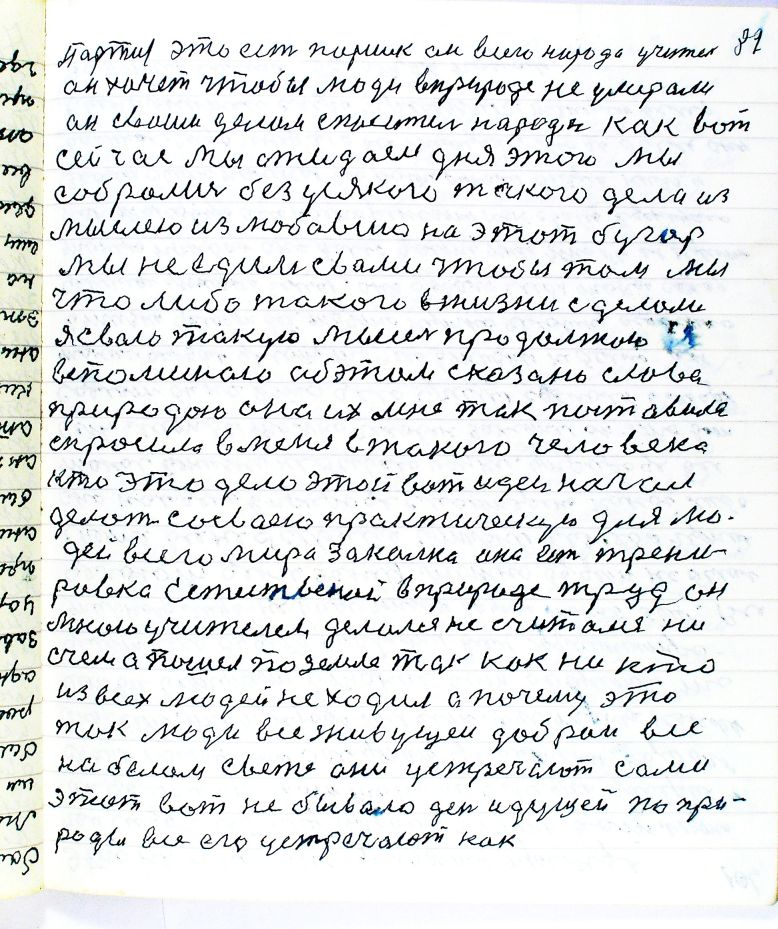 81
Партии это ест паршек он всего народа учител
он хочет чтобы люди вприроде не умирали
он своим делом спаситель народу как вот
сейчас мы ожидаем дня этого мы
собралися без усякого такого дела из
мыслею из любовию на этот бугор
мы не едим свами чтобы там мы
что либо такого вжизни сделали
я сваю такую мысел продолжаю я
вспоминаю обэтом сказано слова
природою она их мне так поставила
спросила вменя втакого человека
кто это дело этой вот идеи начал
делат сосваею практическую для лю-
дей всего мира закалка она ест трени-
ровка Естественой вприроде труд он
мною учителем делался не считался ни
счем а пошел поземле так как ни кто
из всех людей не ходил а почему это
так люди все живущеи добром все
на белом свете они устречают сами
этот вот не бывало ден идущей по при-
роды все его устречают как